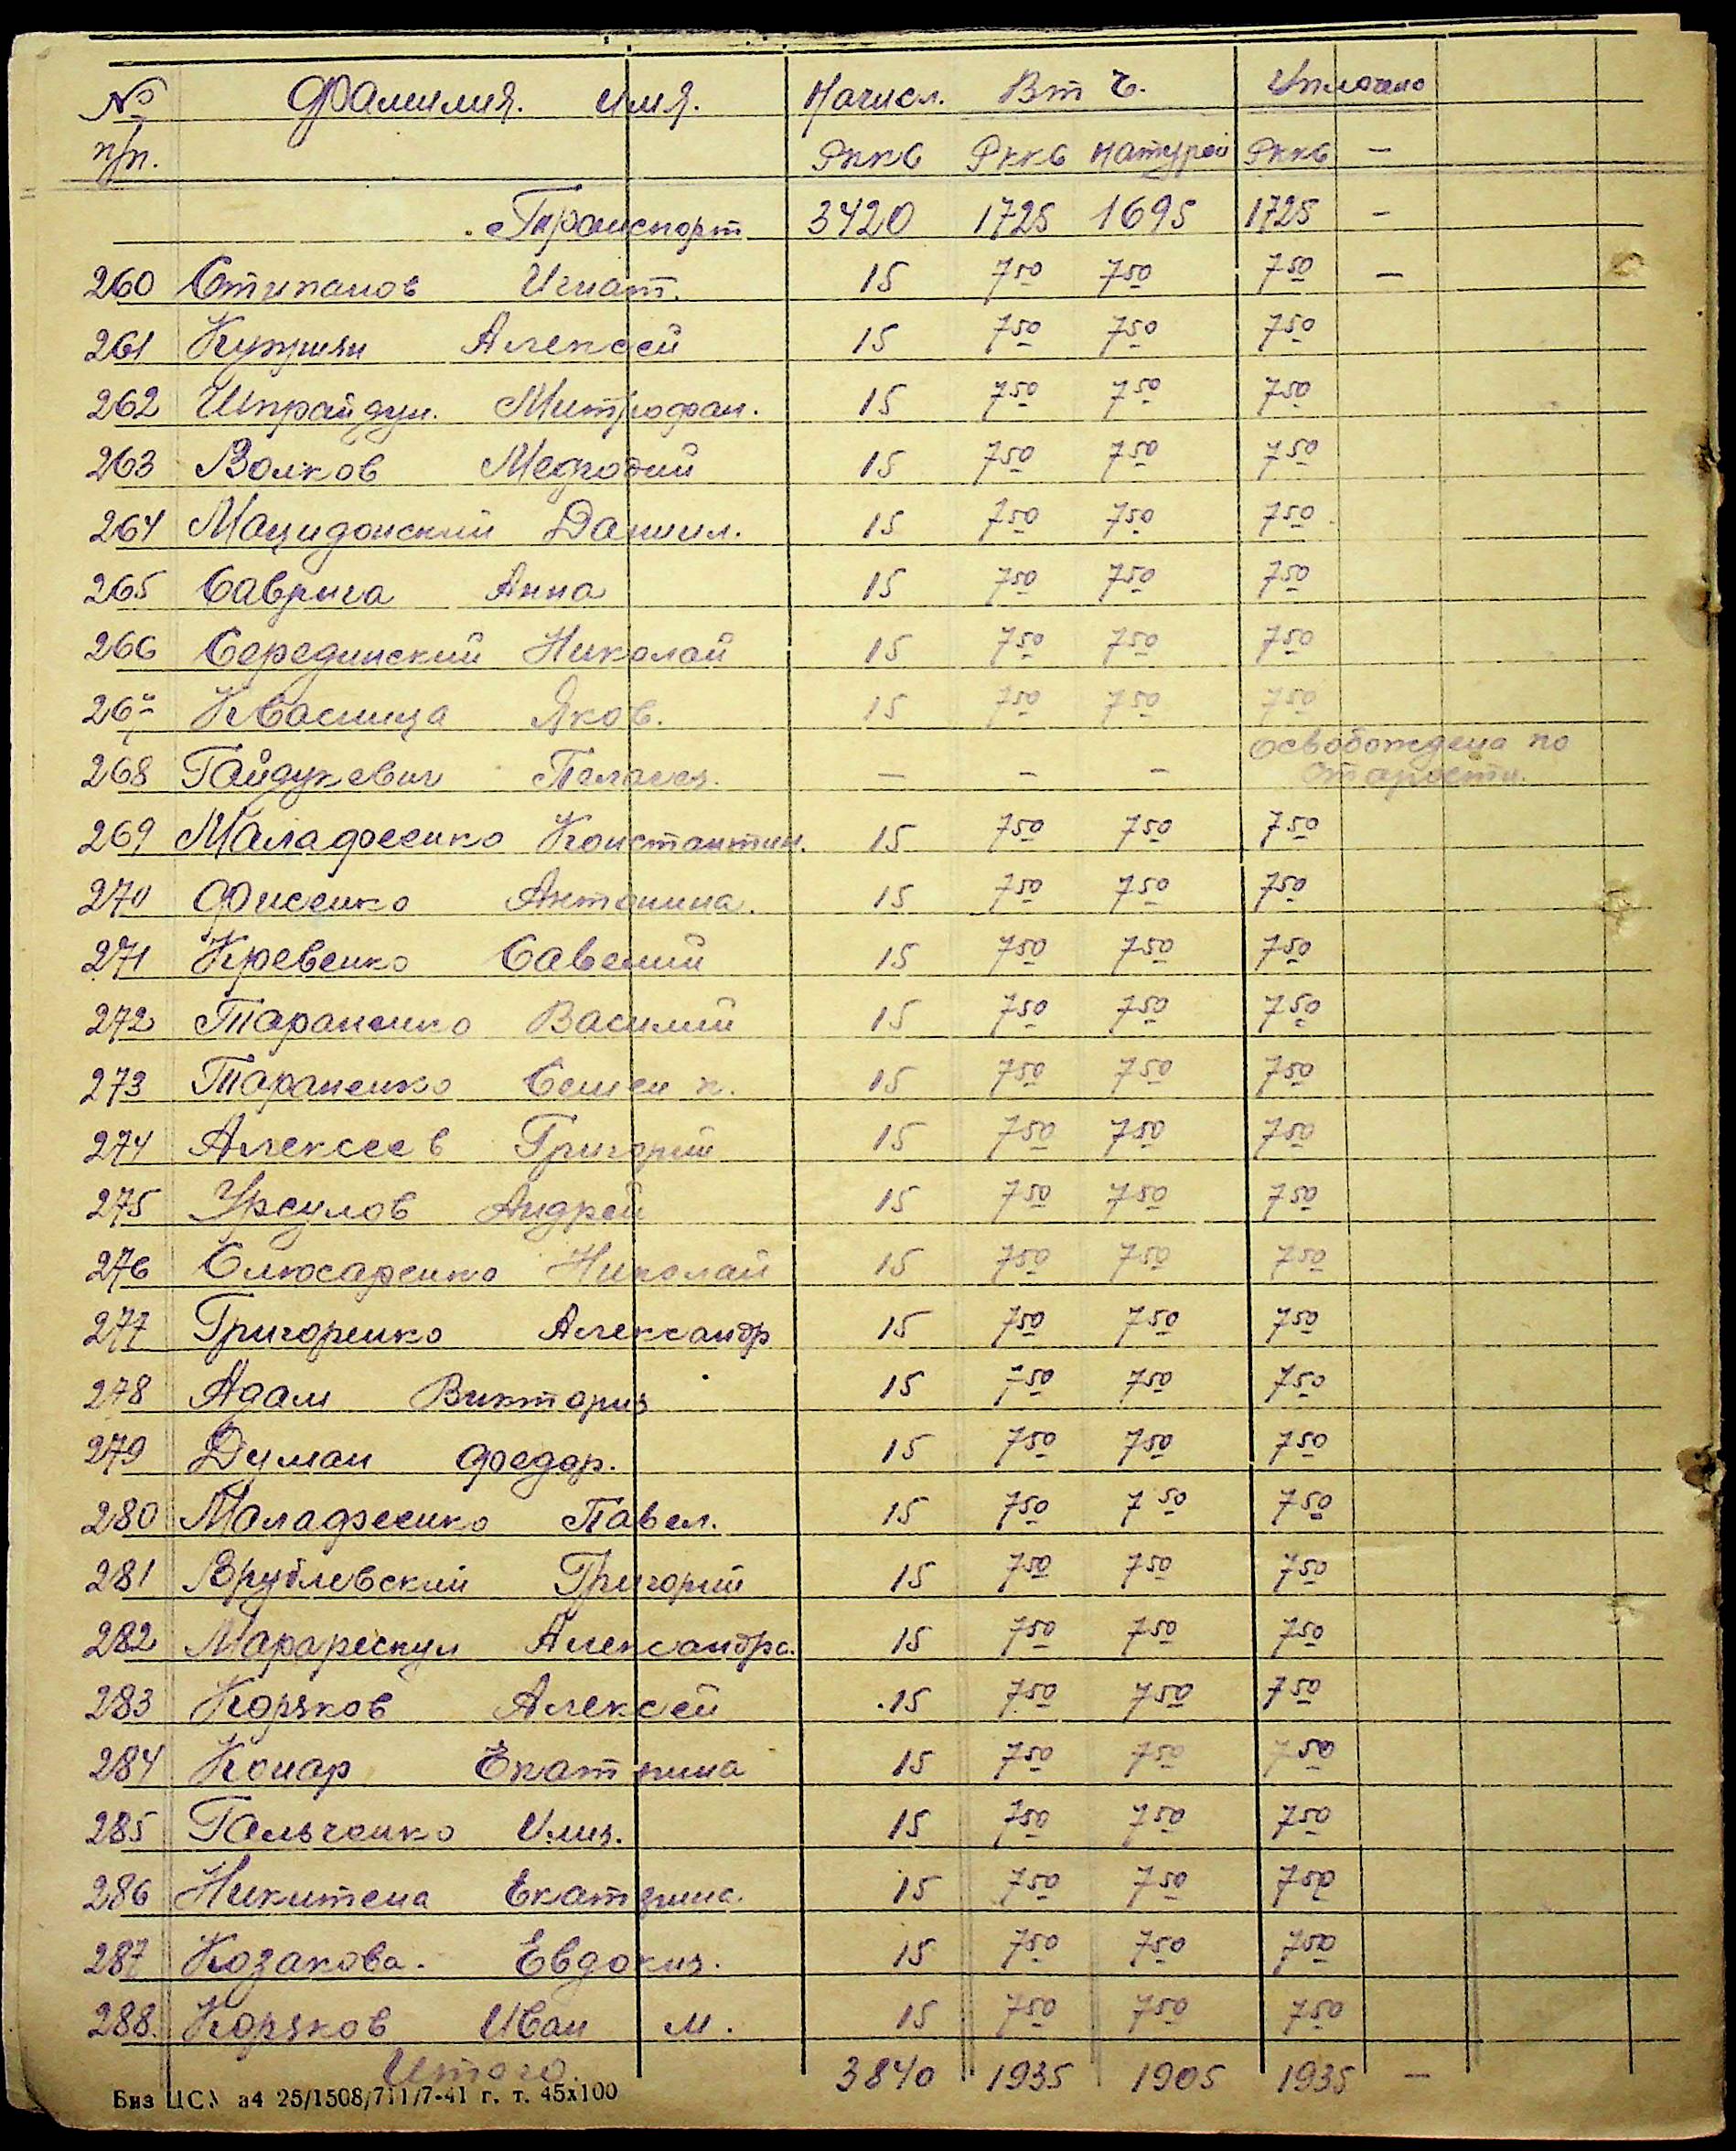 № Фамилия. имя. Начисл. Вт ч. Уплочено
п/п. Рккв Рккв натурой Рккв —
Транспорт 3420 1725 1695 1725 —
260 Стипанов Игнат. 15 7 50 7 50 7 50 —
261 Купушян Алексей 15 7 50 7 50 7 50
262 Шпрайдун. Митрофан. 15 7 50 7 50 7 50
263 Волков Мефодий 15 7 50 7 50 7 50
264 Мацидонский Данил. 15 7 50 7 50 7 50
265 Саврига Анна 15 7 50 7 50 7 50
266 Серединский Николай 15 7 50 7 50 7 50
267 Квасница Яков. 15 7 50 7 50 7 50
268 Гайдукевич Пелагея. — — — освобождена по старости.
269 Маладженко Константин. 15 7 50 7 50 7 50
270 Фисенко Антонина. 15 7 50 7 50 7 50
271 Кревенко Савелий 15 7 50 7 50 7 50
272 Тараненко Василий 15 7 50 7 50 7 50
273 Тараненко Семен п. 15 7 50 7 50 7 50
274 Алексеев Григорий 15 7 50 7 50 7 50
275 Урсулов Андрей 15 7 50 7 50 7 50
276 Слюсаренко Николай 15 7 50 7 50 7 50
277 Григоренко Александр 15 7 50 7 50 7 50
278 Адам Виктория 15 7 50 7 50 7 50
279 Думан Федор. 15 7 50 7 50 7 50
280 Маладженко Павел. 15 7 50 7 50 7 50
281 Врублевский Григорий 15 7 50 7 50 7 50
282 Марарескул Александра. 15 7 50 7 50 7 50
283 Коряков Алексей 15 7 50 7 50 7 50
284 Конар Екатрина 15 7 50 7 50 7 50
285 Гальченко Илия. 15 7 50 7 50 7 50
286 Никитена Екатрина. 15 7 50 7 50 7 50
287 Козакова. Евдокия. 15 7 50 7 50 7 50
288. Коряков Иван М. 15 7 50 7 50 7 50
Итого. 3840 1935 1905 1935 —
Биз ЦСУ а4 25/1508/711/7-41 г. т. 45х100